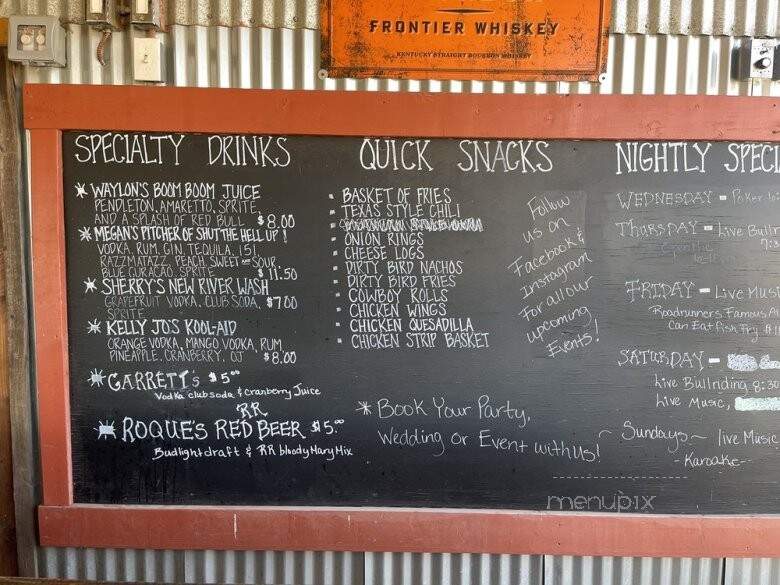 FRONTIER WHISKEY
KENTUCKY STRAIGHT BOURBON WHISKEY
SPECIALTY DRINKS
* WAYLON'S BOOM BOOM JUICE
PENDLETON, AMARETTO, SPRITE
AND A SPLASH OF RED BULL $8.00
* MEGAN'S PITCHER OF SHUT THE HELL UP!
VODKA, RUM, GIN, TEQUILA, 151
RAZZMATAZZ, PEACH, SWEET AND SOUR
BLUE CURACAO, SPRITE $11.50
* SHERRY'S NEW RIVER WASH
GRAPEFRUIT VODKA, CLUB SODA, $7.00
SPRITE
* KELLY JO'S KOOL-AID
ORANGE VODKA, MANGO VODKA, RUM,
PINEAPPLE, CRANBERRY, OJ $8.00
* GARRETT'S $5.00
Vodka club soda & Cranberry Juice
RR
* ROQUE'S RED BEER $5.00
Budlight draft & RR bloody Mary Mix
QUICK SNACKS
- BASKET OF FRIES
- TEXAS STYLE CHILI
- ONION RINGS
- CHEESE LOGS
- DIRTY BIRD NACHOS
- DIRTY BIRD FRIES
- COWBOY ROLLS
- CHICKEN WINGS
- CHICKEN QUESADILLA
- CHICKEN STRIP BASKET
Follow
us on
Facebook &
Instagram
For all our
upcoming
Events!
* Book Your Party,
Wedding or Event with us!
NIGHTLY SPECI
WEDNESDAY - Poker
THURSDAY - Live Bullr
FRIDAY - Live Musi
Roadrunners Famous Al
Can Eat Fish Fry
SATURDAY -
Live Bullriding 8:30
Live Music,
~ Sundays ~ live Music
- Karaoke -
menupix